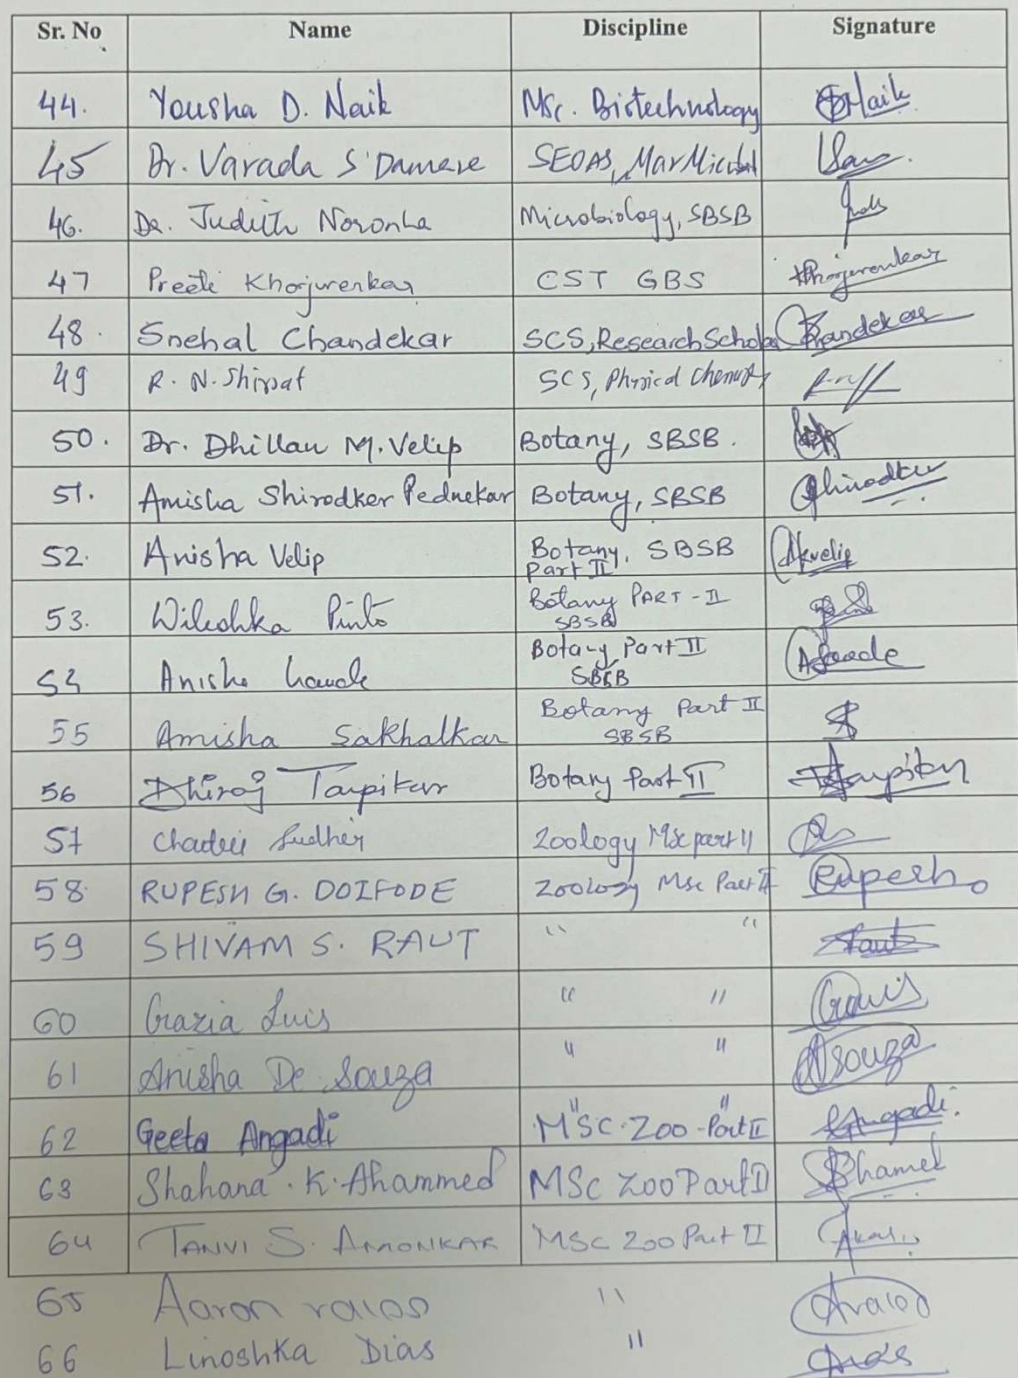 Sr. No Name Discipline Signature
44. Yousha D. Naik MSc. Biotechnology Naik
45 Dr. Varada S Damare SEOAS, Mar Microbiol
46. Dr. Judith Noronha Microbiology, SBSB
47 Preeti Khorjurenkar CST GBS Khorjurenkar
48. Snehal Chandekar SCS, Research Scholar Chandekar
49 R. N. Shirsat SCS, Physical Chemistry
50. Dr. Dhillan M. Velip Botany, SBSB.
51. Amisha Shirodker Pednekar Botany, SBSB Shirodker
52. Anisha Velip Botany, SBSB Akvelip
Part II
53. Wileshka Pinto Botany PART-II
SBSB
Anisha Botany Part II
SBSB
55 Amisha Sakhalkar Botany Part II
SBSB
56 Dhiraj Tarpikar Botany Part II
57 Zoology MSc part II
58 RUPESH G. DOIFODE Zoology Msc Part II Rupesh
59 SHIVAM S. RAUT " " Raut
60 Grazia Luis " "
61 Anisha De Souza " " Asouza
" "
62 Geeta Angadi MSC. ZOO - Part II Angadi.
63 Shahana . K. Ahammed MSc ZOO Part II
64 TANVI S. AMONKAR MSC ZOO Part II
65 Aaron raios "
66 Linoshka Dias "